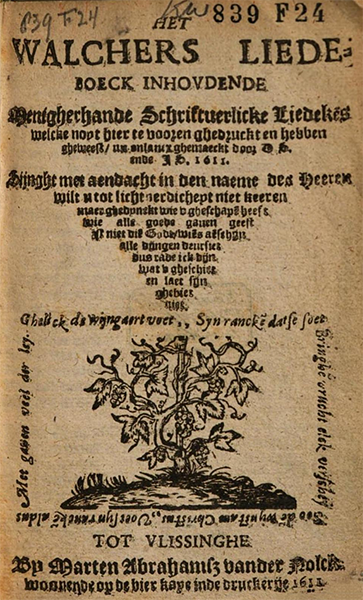 839 F24
KW 839 F24
HET
WALCHERS LIEDE-
BOECK INHOVDENDE
Menigherhande Schriftuerlicke Liedekēs
welcke noyt hier te vooren ghedruckt en hebben
gheweest / nu onlancx ghemaeckt door D. S.
ende J. D. 1611.
Singht met aendacht in den naeme des Heeren
wilt u tot lichtveerdicheyt niet keeren
maer ghedynckt wie v gheschapē heeft
wie alle goede gauen geeft
Ist niet die
alle dyngen
dus rade ick dijn
wat v gheschiet
en laet sijn
ghebiet
niet
Ghelijck de wijngaert voet ,, Syn ranckē datse soet
Bringhe vrucht elck
Soo de Wijnstam Christus ,, Voet sijn ranckē aldus
Met gauen veel der ley.
TOT VLISSINGHE
By Marten Abrahamsz vander Nolck
woonende op de bier kaye inde druckerije 1611